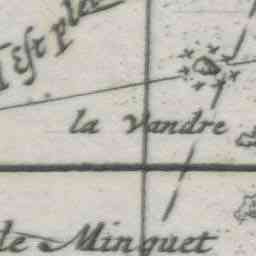 l'Est plei
la Vandre
de Minquet